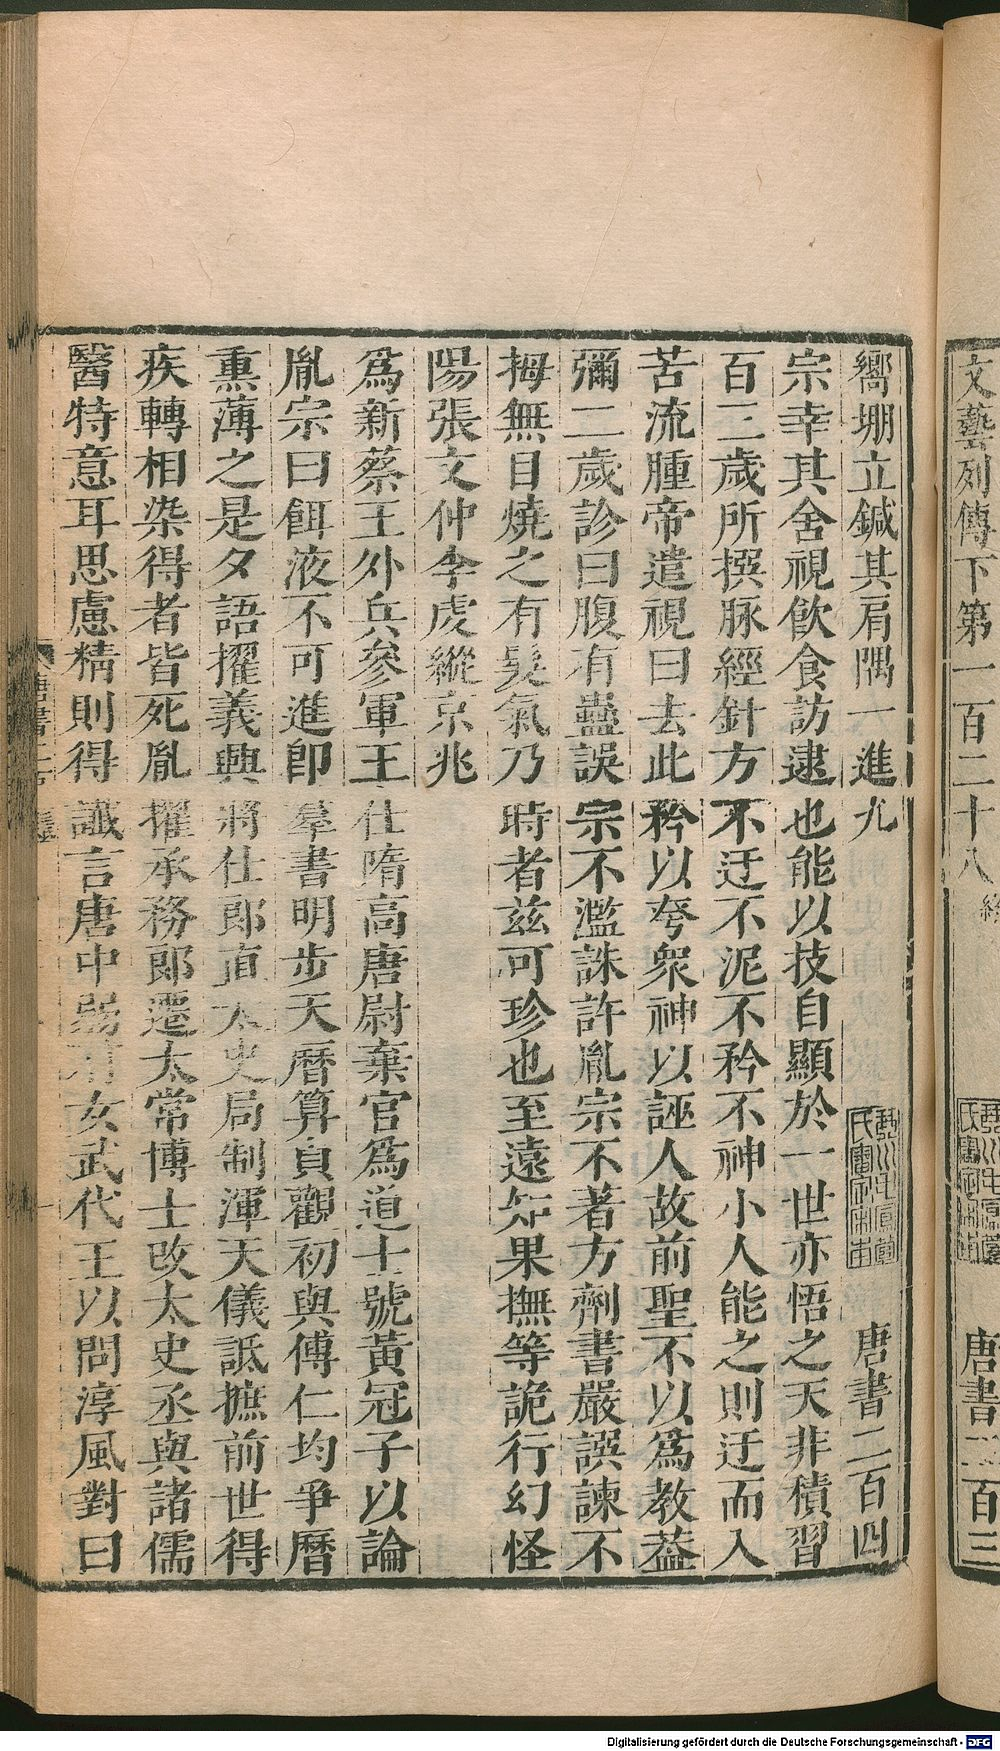 文藝列傳下第一百二十八 終
琴川毛鳳苞
氏審定宋本
唐書二百三
嚮堋立鍼其肩隅一進九
琴川毛鳳苞
氏審定宋本
唐書二百四
宗幸其舍視飲食訪逮也能以技自顯於一世亦悟之天非積習
百三歲所撰脉經針方不迂不泥不矜不神小人能之則迂而入
苦流腫帝遣視曰去此矜以夸衆神以誣人故前聖不以爲教蓋
彌二歲診曰腹有蠱誤宗不濫誅許胤宗不著方劑書嚴譔諫不
拇無目燒之有髮氣乃時者兹可珍也至遠知果撫等詭行幻怪
陽張文仲李虔縱京兆
爲新蔡王外兵參軍王仕隋高唐尉棄官爲道士號黃冠子以論
胤宗曰餌液不可進即羣書明步天曆算貞觀初與傅仁均爭曆
熏薄之是夕語擢義興將仕郎直太史局制渾天儀詆摭前世得
疾轉相染得者皆死胤擢承務郎遷太常博士改太史丞與諸儒
醫特意耳思慮精則得讖言唐中弱有女武代王以問淳風對曰
唐書二百
Digitalisierung gefördert durch die Deutsche Forschungsgemeinschaft - DFG